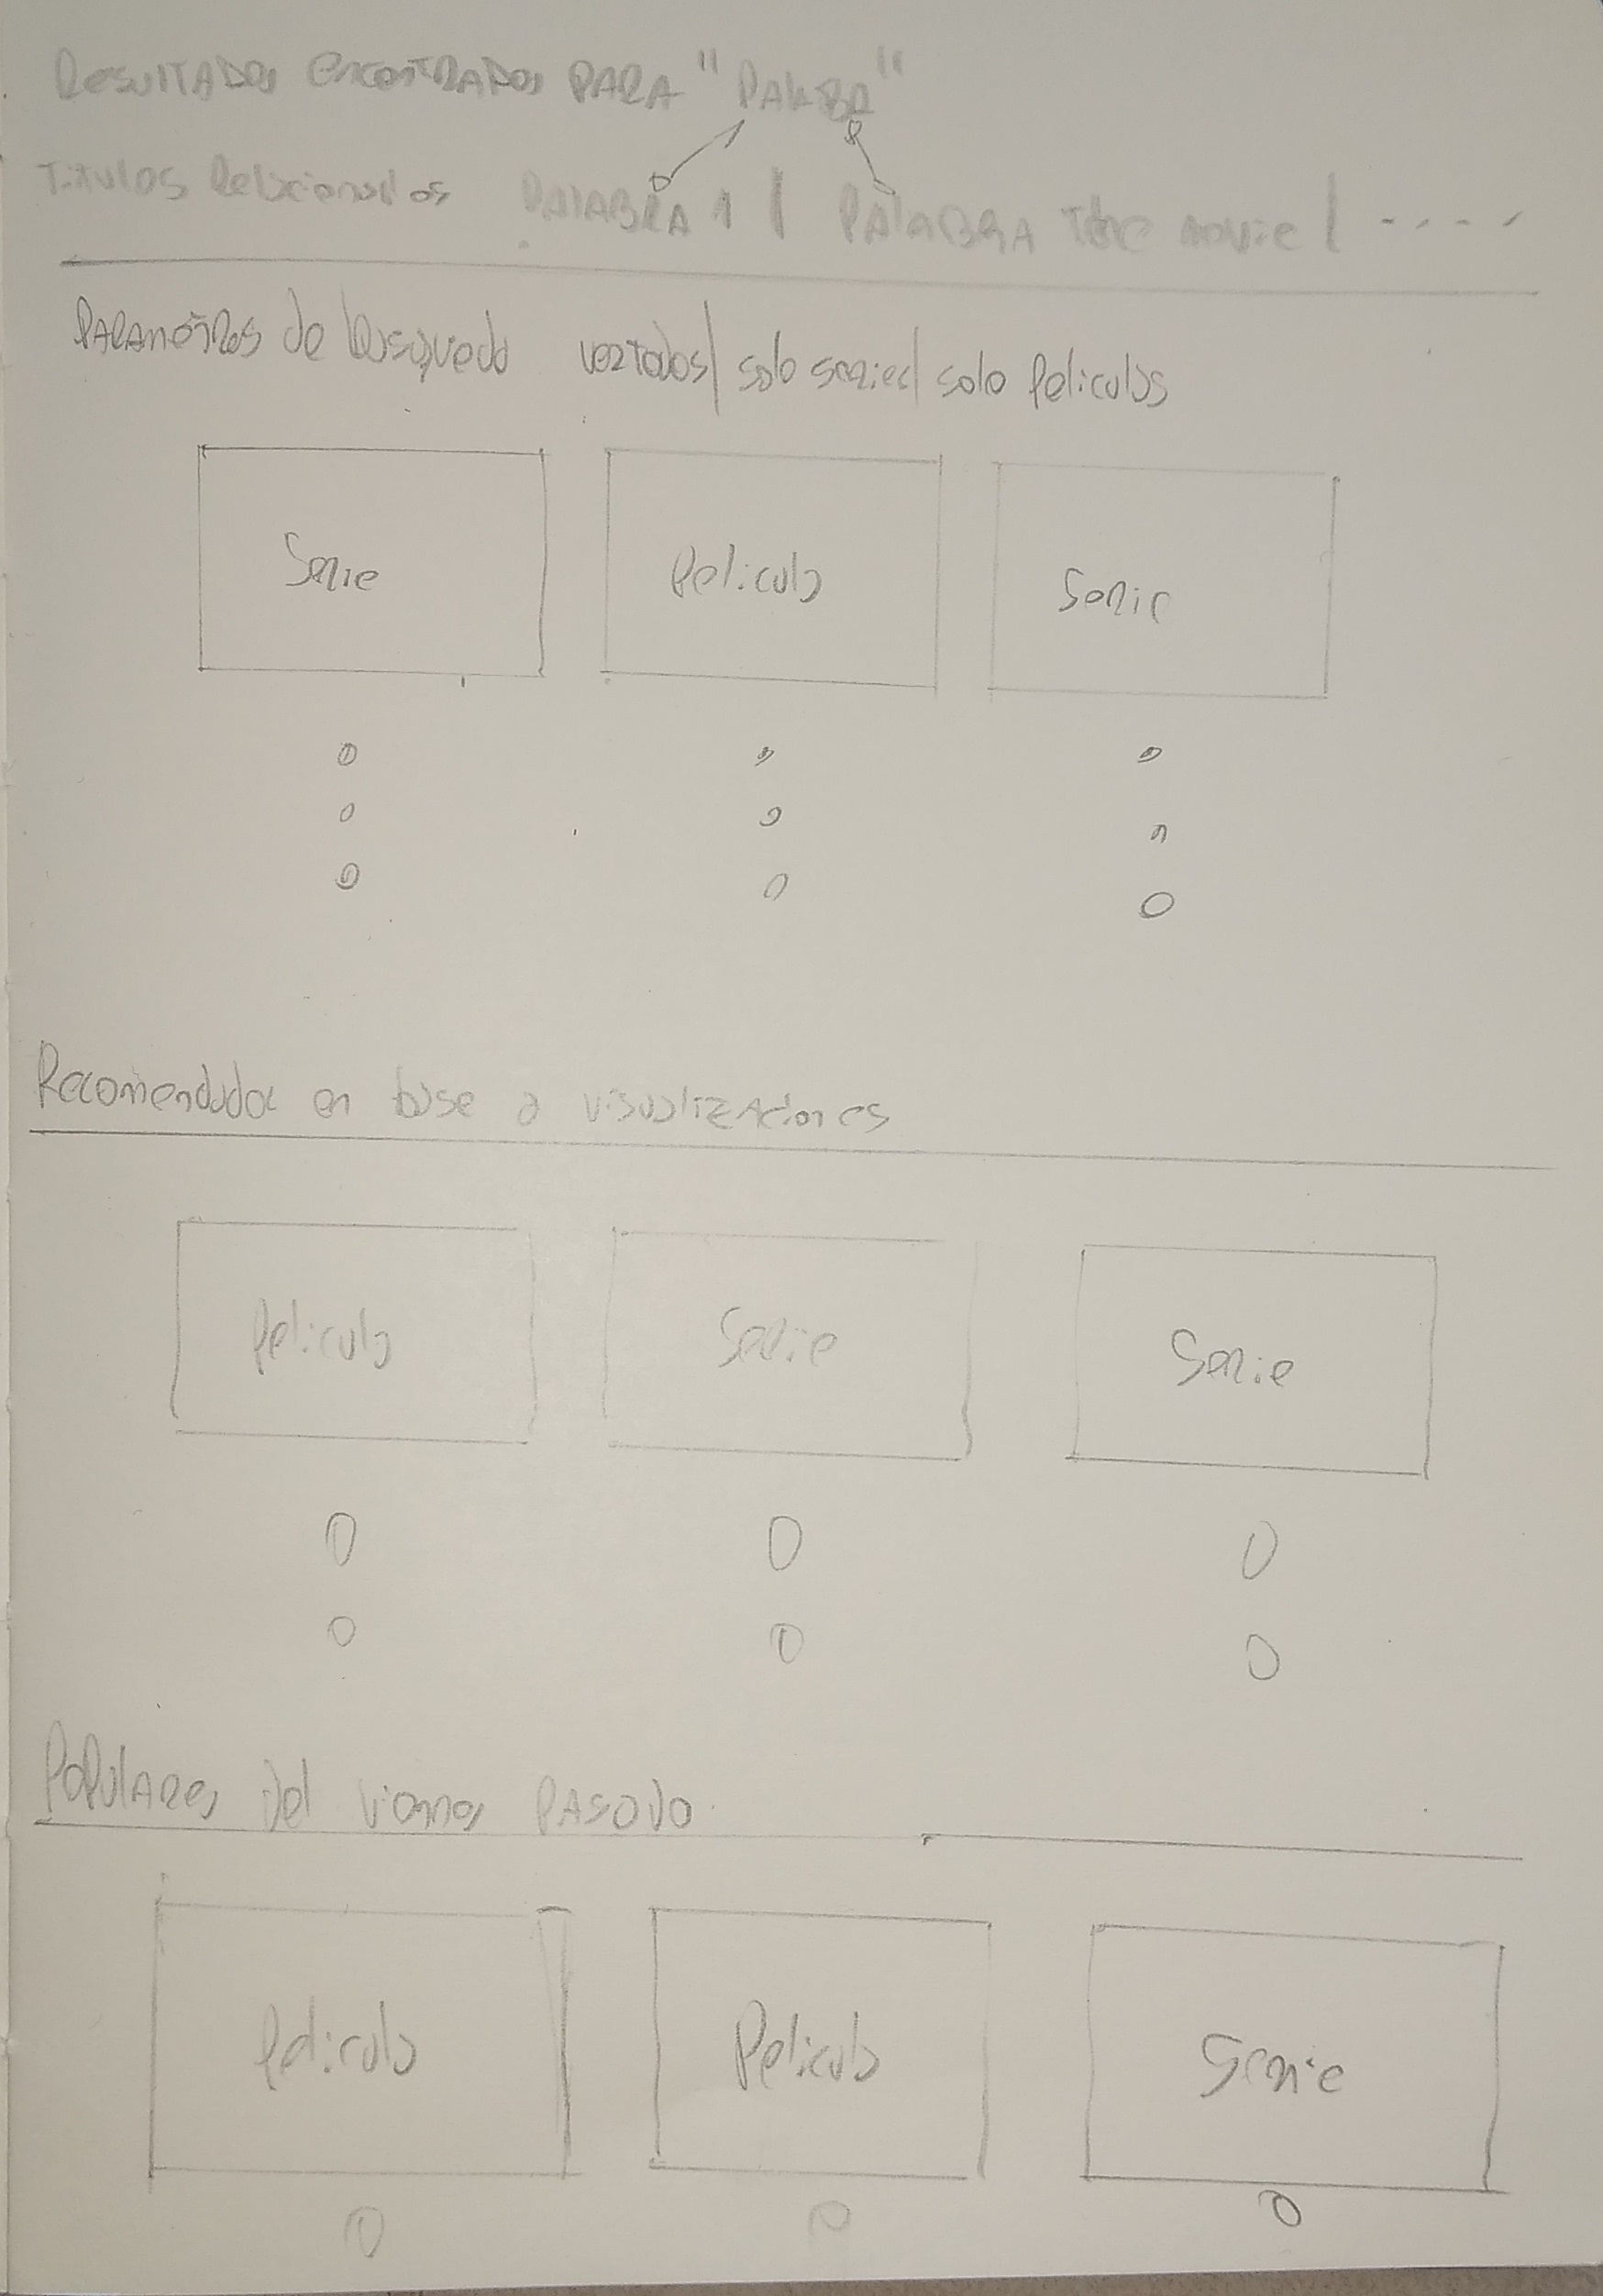 Resultados encontrados PARA "PALABRA"
Titulos Relacionados PALABRA 1 | PALABRA The movie | - - - -
PARAMETROS de busqueda ver todos | solo series | solo Peliculas
Serie Pelicula Serie
Recomendados en base a visualizaciones
Pelicula Serie Serie
POPULARES del viernes PASADO
Pelicula Pelicula Serie